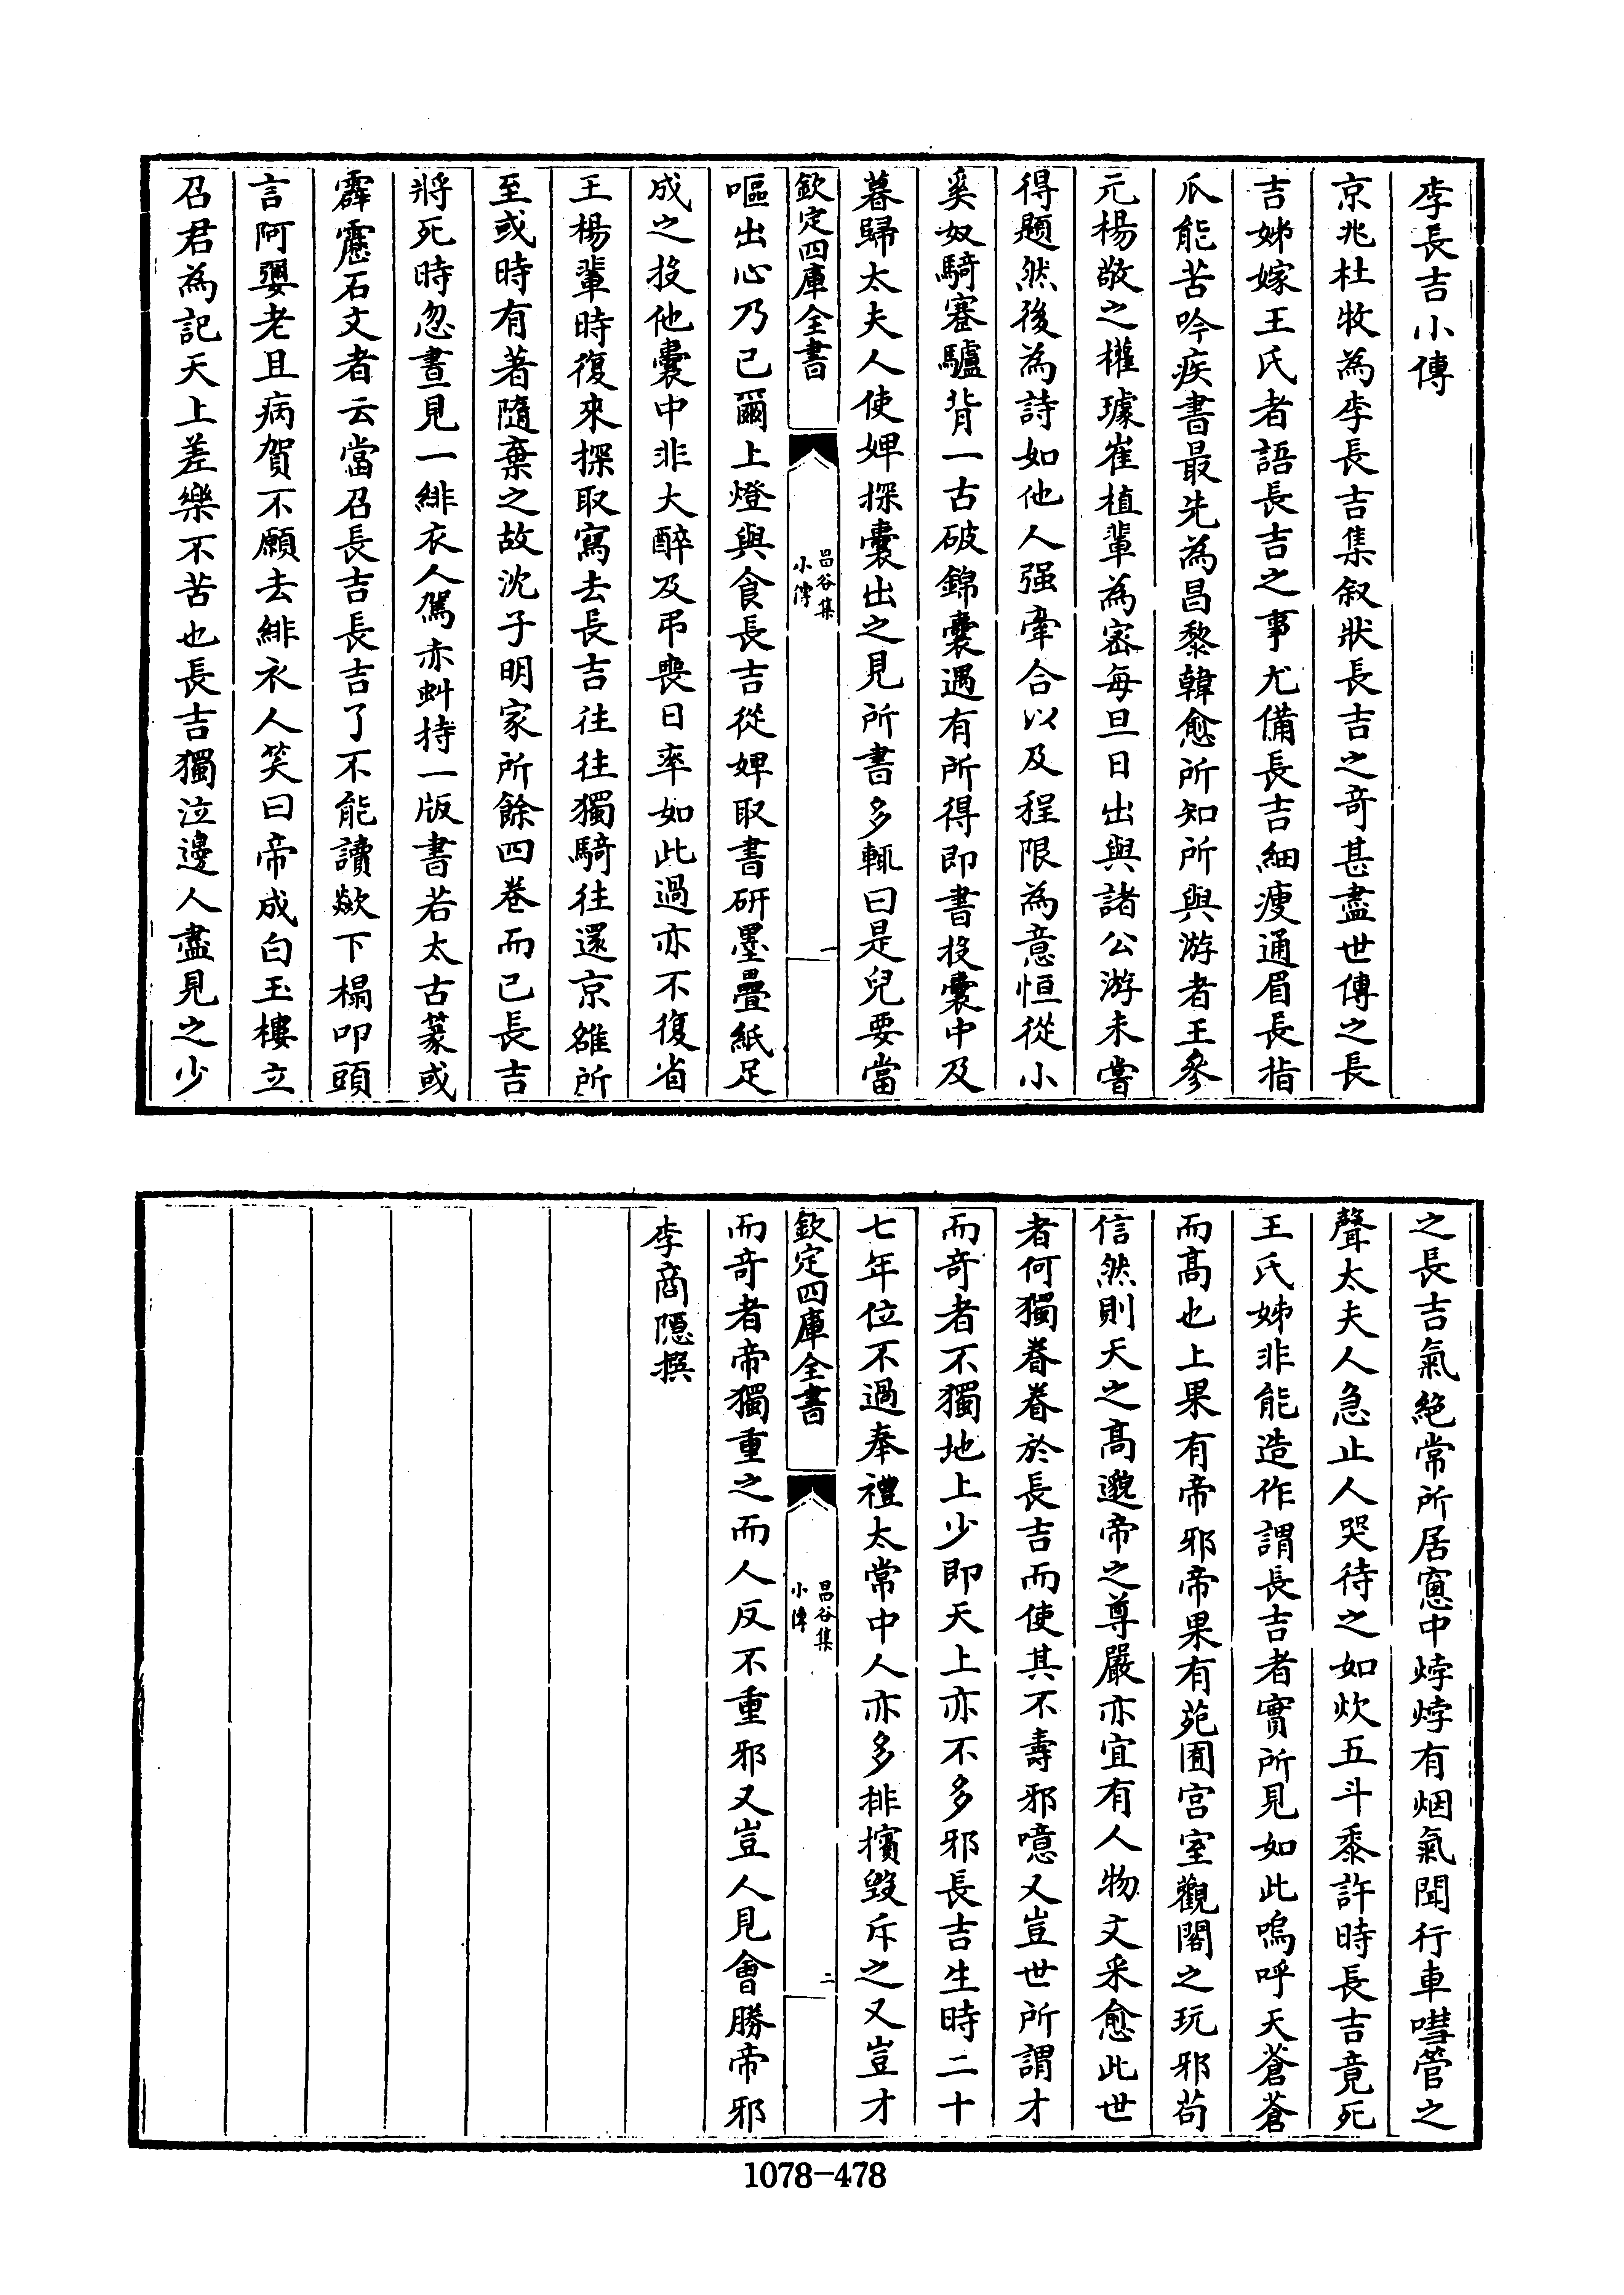 李長吉小傳
京兆杜牧為李長吉集叙狀長吉之奇甚盡世傳之長
吉姊嫁王氏者語長吉之事尤備長吉細瘦通眉長指
爪能苦吟疾書最先為昌黎韓愈所知所與游者王參
元楊敬之權璩崔植輩為密每旦日出與諸公游未嘗
得題然後為詩如他人强牽合以及程限為意恒從小
奚奴騎蹇驢背一古破錦囊遇有所得即書投囊中及
暮歸太夫人使婢探囊出之見所書多輒曰是兒要當
欽定四庫全書
昌谷集
小傳
一
嘔出心乃已爾上燈與食長吉從婢取書研墨疊紙足
成之投他囊中非大醉及弔喪日率如此過亦不復省
王楊輩時復來探取寫去長吉往往獨騎往還京雒所
至或時有著隨棄之故沈子明家所餘四卷而已長吉
將死時忽晝見一緋衣人駕赤虯持一版書若太古篆或
霹靂石文者云當召長吉長吉了不能讀歘下榻叩頭
言阿㜷老且病賀不願去緋衣人笑曰帝成白玉樓立
召君為記天上差樂不苦也長吉獨泣邊人盡見之少
之長吉氣絶常所居窻中烞烞有烟氣聞行車嘒管之
聲太夫人急止人哭待之如炊五斗黍許時長吉竟死
王氏姊非能造作謂長吉者實所見如此嗚呼天蒼蒼
而髙也上果有帝邪帝果有苑囿宫室觀閣之玩邪苟
信然則天之髙邈帝之尊嚴亦宜有人物文采愈此世
者何獨眷眷於長吉而使其不壽邪噫又豈世所謂才
而奇者不獨地上少即天上亦不多邪長吉生時二十
七年位不過奉禮太常中人亦多排擯毀斥之又豈才
欽定四庫全書
昌谷集
小傳
二
而奇者帝獨重之而人反不重邪又豈人見會勝帝邪
李商隱撰
1078-478